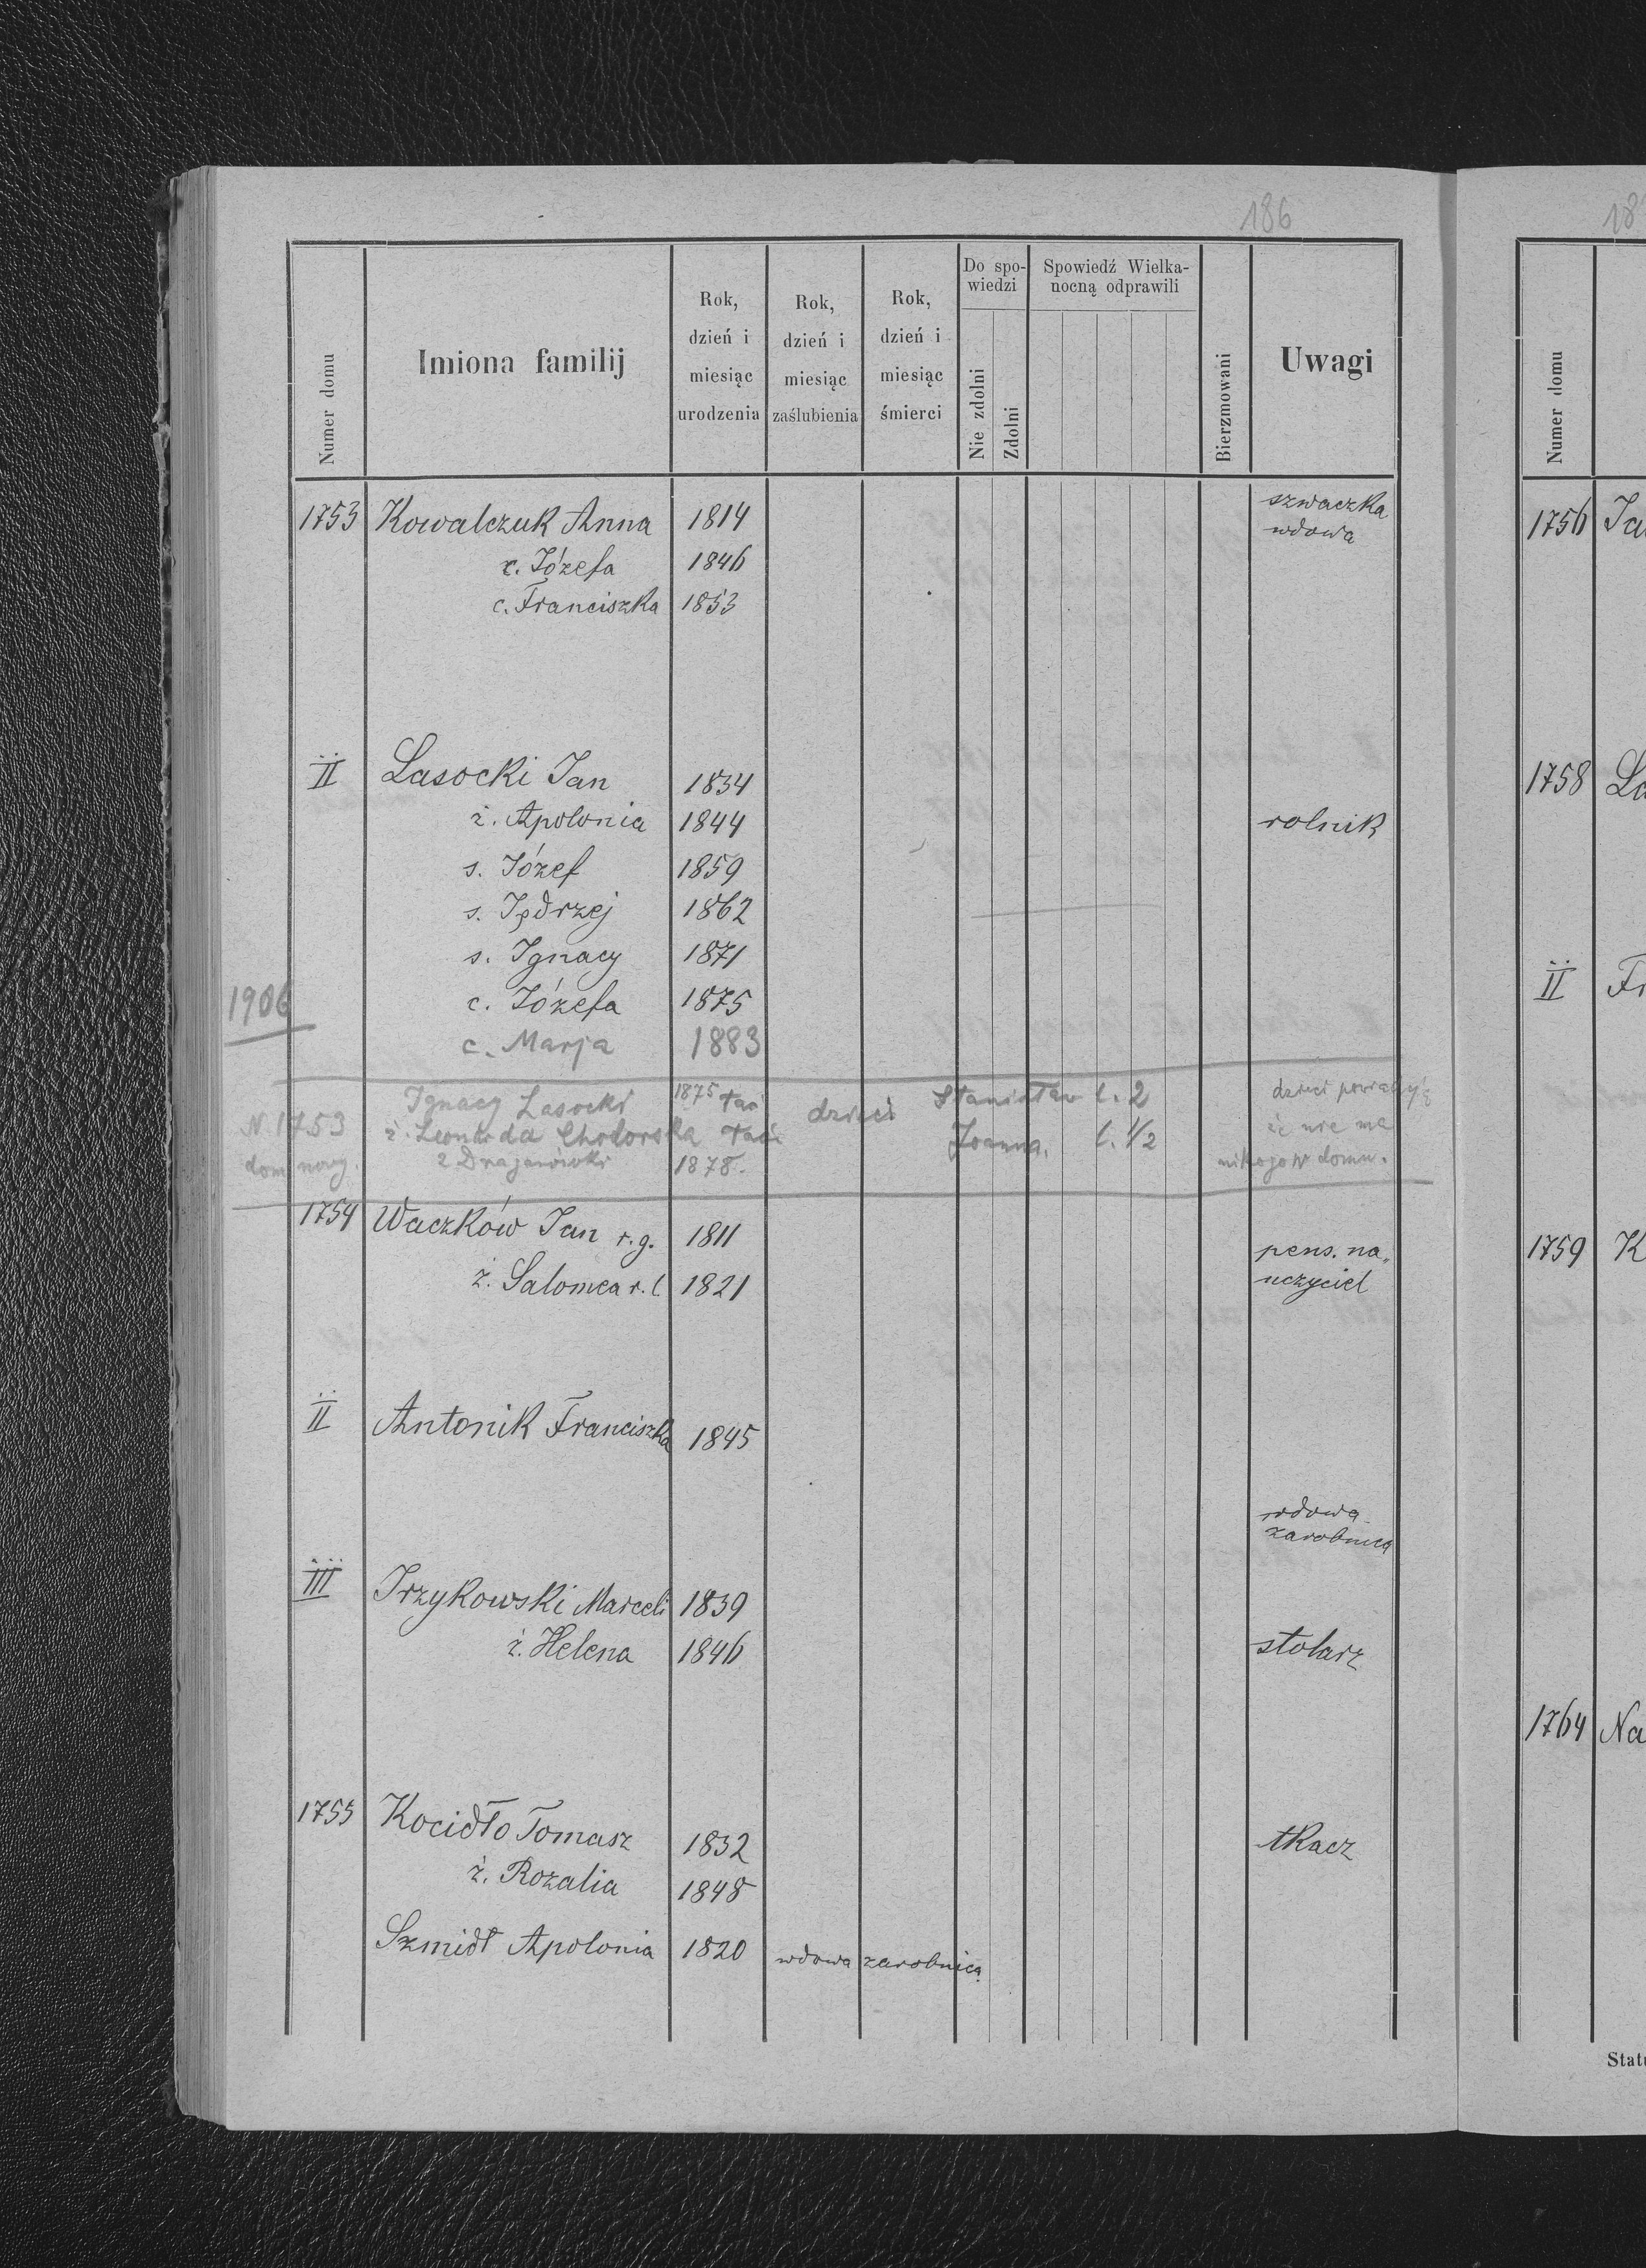 186
Numer domu
Imiona familij
Rok, dzień i miesiąc urodzenia
Rok, dzień i miesiąc zaślubienia
Rok, dzień i miesiąc śmierci
Do spo-
wiedzi
Nie zdolni
Zdolni
Spowiedź Wielka-
nocną odprawili
Bierzmowani
Uwagi
1753 Kowalczuk Anna 1814 szwaczka
wdowa
c. Józefa 1846
c. Franciszka 1853
II Lasocki Jan 1834
ż. Apolonia 1844 rolnik
s. Józef 1859
s. Jędrzej 1862
s. Ignacy 1871
1906 c. Józefa 1875
c. Marja 1883
Ignacy Lasocki 1875 dzieci Stanisław l. 2 dzieci
N. 1753 ż. Leonarda Joanna. l. 1/2 że nie ma
dom nowy. 1878. nikogo w domu.
1754 Waczków Jan r.g. 1811 pens. na„
ż. Salomea r. l. 1821 uczyciel
II Antonik Franciszka 1845
wdowa
zarobnica
III Irzykowski Marceli 1839
ż. Helena 1846 stolarz
1755 Kocidło Tomasz 1832 tkacz
ż. Rozalia 1848
Szmidt Apolonia 1820 wdowa zarobnica
18
Numer domu
1756 Ja
1758 La
II Fr
1759 K
1764 Na
Stat